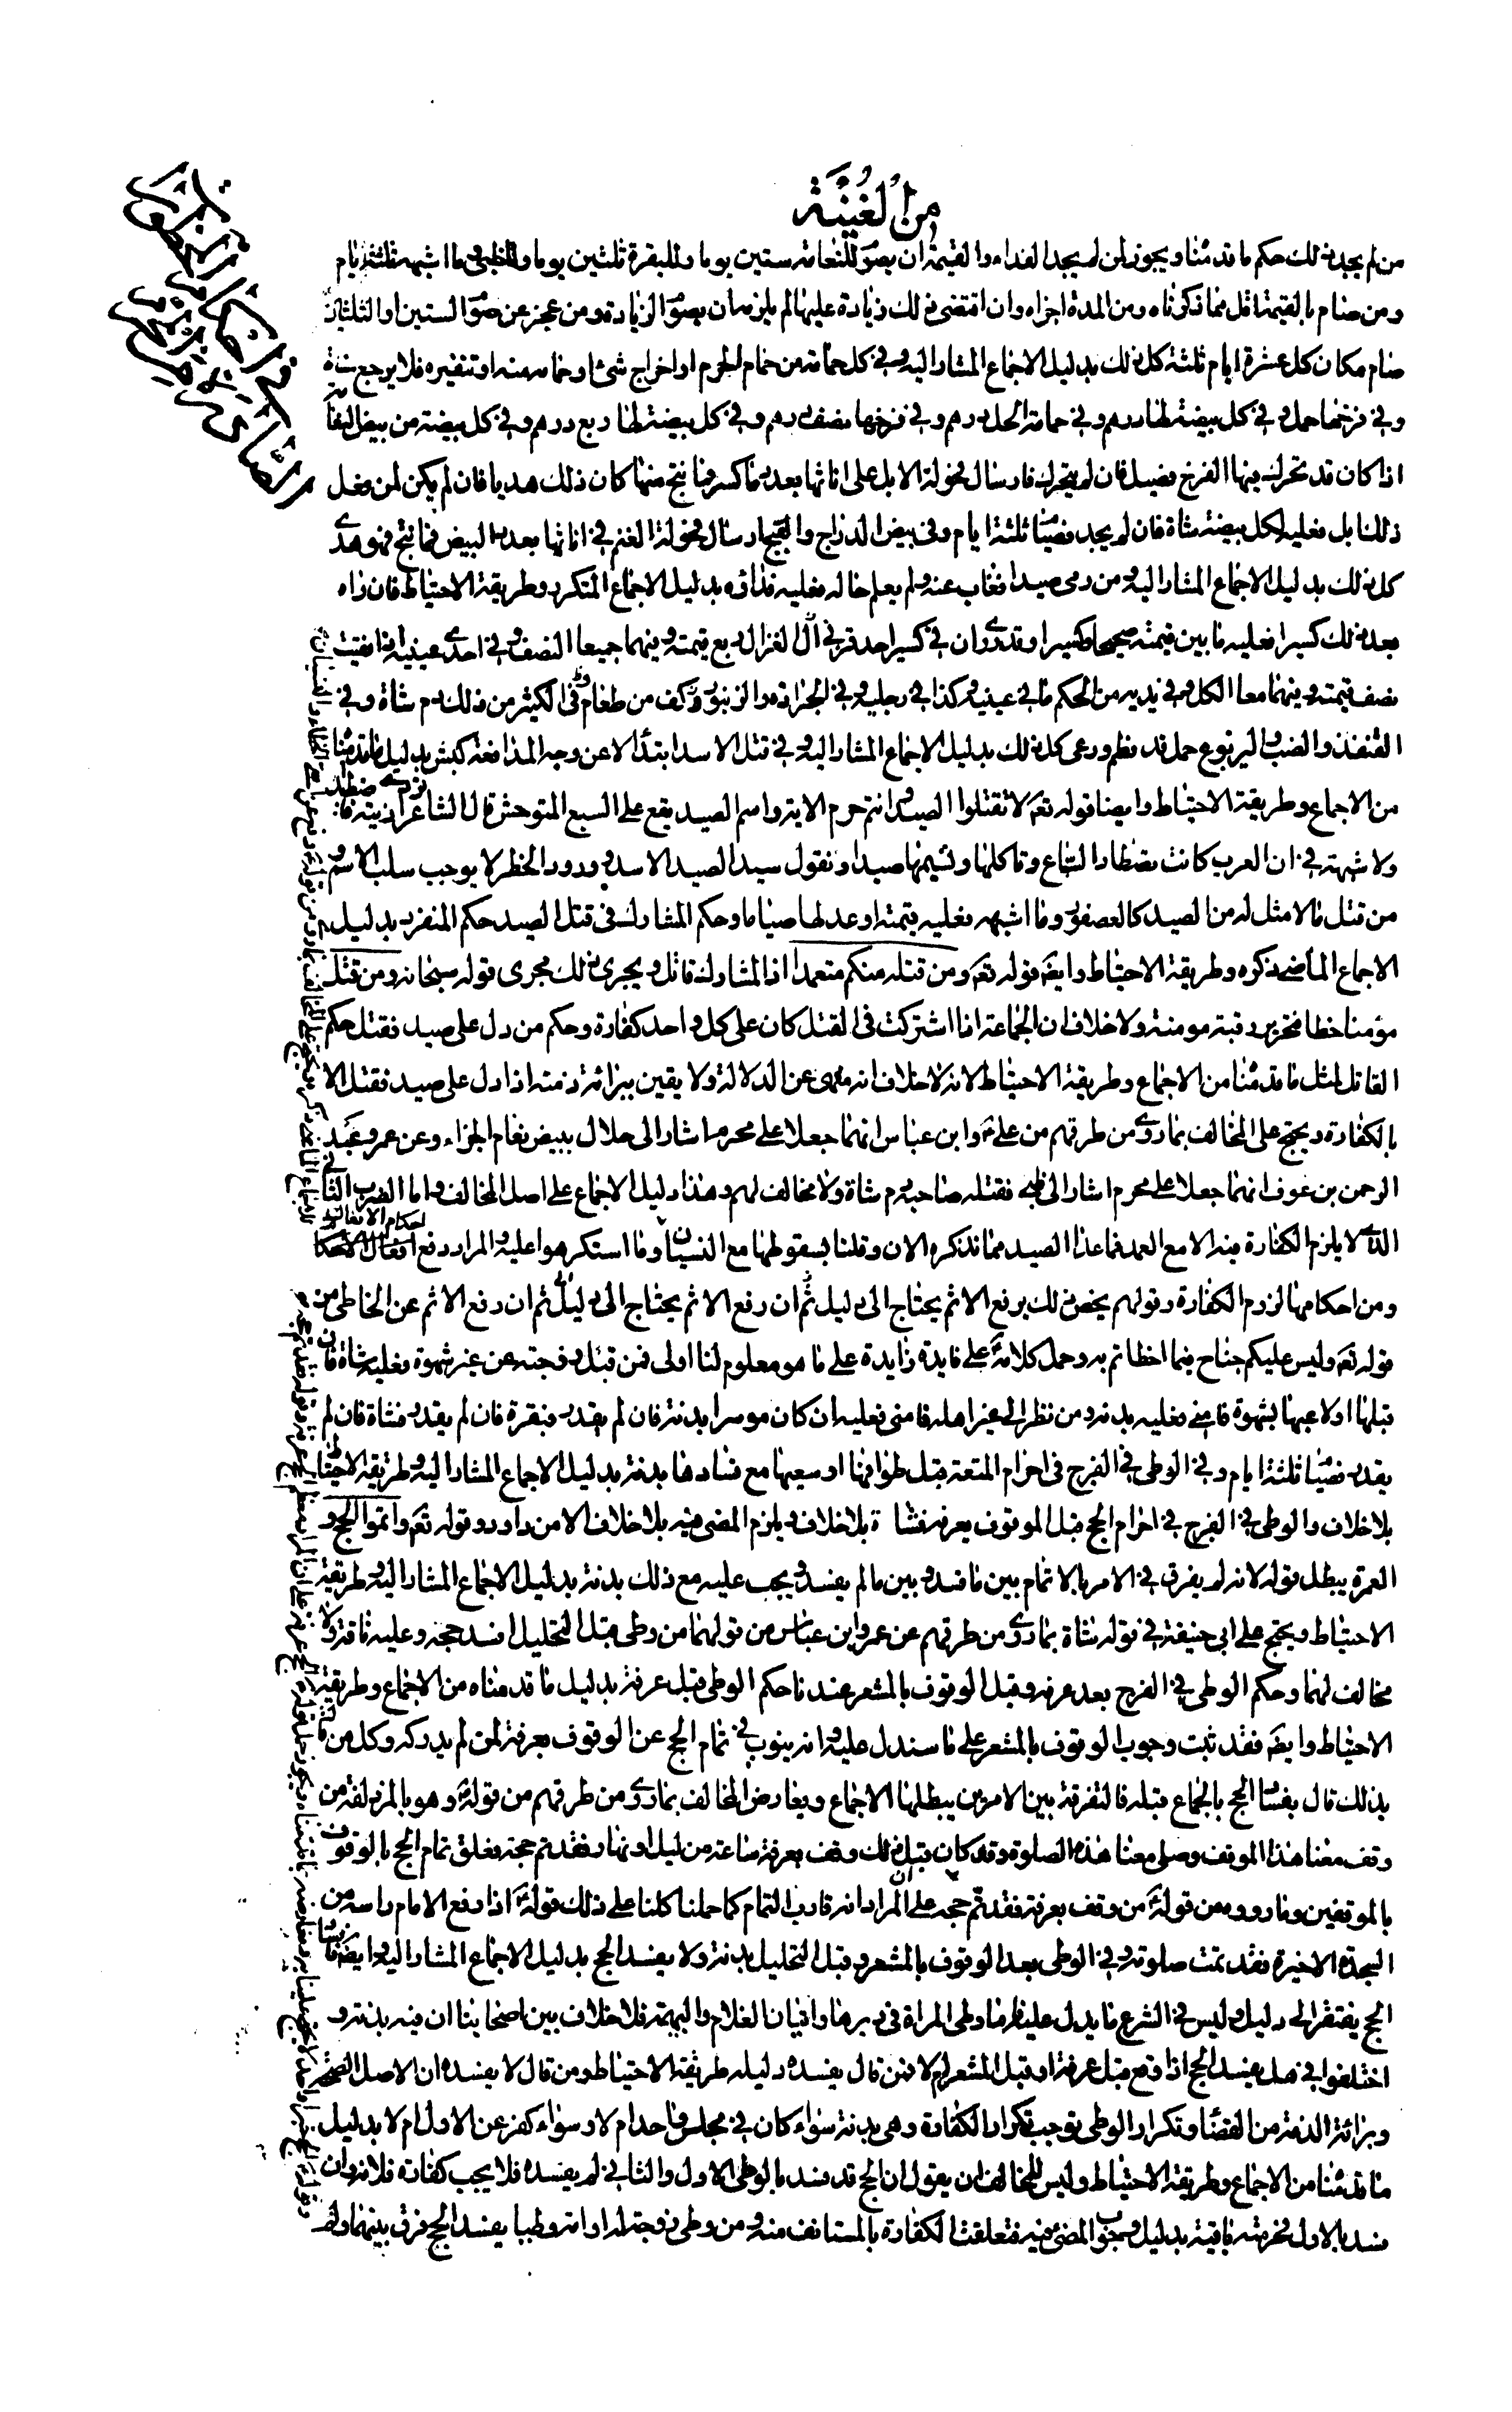 من الغنية
من لم يجد ذلك حكم ما قدمنا ويجوز لمن لم يجد الفداء والقيمة ان يصوم للنعامة ستين يوما وللبقرة ثلثين يوما وللظبى وما اشبهه ثلثة ايام
ومن صام بالقيمة اقل مما ذكرناه ومن المدة اجزاه وان اقتضى ذلك زيادة عليها لم يلزمه ان يصوم الزيادة ومن عجز عن صوم الستين او الثلثين
صام مكان كل عشرة ايام ثلثة كل ذلك بدليل الاجماع المشار اليه وفي كل حمامة من حمام الحرم او اخراج شئ او حمامه منه او تنفيره فلا يرجع شاة
وفي فرخها حمل وفي كل بيضة لها درهم وفي حمامة الحل درهم وفي فرخها نصف درهم وفي كل بيضة لها ربع درهم وفي كل بيضة من بيض النعامة
اذا كان قد تحرك فيها الفرخ فصيل فان لم يتحرك فارسال فحولة الابل على اناثها بعدد ما كسر فما نتج منها كان ذلك هديا فان لم يكن لمن فعل
ذلك ابل فعليه لكل بيضة شاة فان لم يجد فصيام ثلثة ايام وفى بيض الدراج والقبج ارسال فحولة الغنم في اناثها بعدد البيض فما نتج فهو هدي
كل ذلك بدليل الاجماع المشار اليه ومن رمى صيدا فغاب عنه ولم يعلم حاله فعليه فداؤه بدليل الاجماع المتكرر وطريقة الاحتياط فان راه
بعد ذلك كسيرا فعليه ما بين قيمته صحيحا وكسيرا وقد روى ان في كسر احد قرني الغزال ربع قيمته وفيهما جميعا النصف وفي احدى عينيه اذا فقئت
نصف قيمته وفيهما معا الكل وفي يديه من الحكم ما في عينيه وكذا في رجليه وفي الجرادة والزنبور كف من طعام وفى الكثير من ذلك دم شاة وفي
القنفذ والضب واليربوع حمل قد فطم ورعى كل ذلك بدليل الاجماع المشار اليه وفي قتل الاسد ابتداء لا عن وجه المدافعة كبش بدليل ما قدمنا
من الاجماع وطريقة الاحتياط وايضا قوله تعه لا تقتلوا الصيد وانتم حرم الاية واسم الصيد يقع على السبع المتوحش قال الشاعر
ولا شبهة في ان العرب كانت تصطاد السباع وتاكلها وتسميها صيدا وتقول سيد الصيد الاسد وورود الحظر لا يوجب سلب الاسم و
من قتل ما لا مثل له من الصيد كالعصفور وما اشبهه فعليه قيمته او عدلها صياما وحكم المشارك في قتل الصيد حكم المنفرد بدليل
الاجماع الماضي ذكره وطريقة الاحتياط وايضه قوله تعه ومن قتله منكم متعمدا اذ المشارك قاتل ويجرى ذلك مجرى قوله سبحانه ومن قتل
مؤمنا خطا فتحرير رقبة مومنة ولا خلاف ان الجماعة اذا اشتركت في القتل كان على كل واحد كفارة وحكم من دل على صيد فقتل حكم
القاتل لمثل ما قدمنا من الاجماع وطريقة الاحتياط لانه لا خلاف انه منهى عن الدلالة ولا يقين ببرائة ذمته اذا دل على صيد فقتل الا
بالكفارة ويحتج على المخالف بما روى من طرقهم من على ع وابن عباس انهما جعلا على محرم اشار الى حلال ببيض نعام الجزاء وعن عمر وعبد
الرحمن بن عوف انهما جعلا على محرم اشار الى ظبي فقتله صاحبه دم شاة ولا مخالف لهم وهذا دليل الاجماع على اصل المخالف واما الضرب الثاني
الذي لا يلزم الكفارة فيه الا مع العمد فما عدا الصيد مما نذكره الان وقلنا بسقوطها مع النسيان وما استكرهوا عليه والمراد رفع احكام الافعال
ومن احكامها لزوم الكفارة وقولهم يخص ذلك برفع الاثم يحتاج الى دليل ثم ان رفع الاثم عن الخاطى من
قوله تعه وليس عليكم جناح فيما اخطاتم به وحمل كلامه ع على فايدة زايدة على ما هو معلوم لنا اولى فمن قبل زوجته عن غير شهوة فعليه شاة فان
قبلها او لاعبها بشهوة فامنى فعليه بدنة ومن نظر الى غير اهله فامنى فعليه ان كان موسرا بدنة فان لم يقدر فبقرة فان لم يقدر فشاة فان لم
يقدر فصيام ثلثة ايام وفي الوطى في الفرج فى احرام المتعة قبل طوافها او سعيها مع فسادها بدنة بدليل الاجماع المشار اليه وطريقة الاحتياط
بلا خلاف والوطى في الفرج في احرام الحج قبل الموقوف بعرفة فشاة بلا خلاف ويلزم المضى فيه بلا خلاف الا من داود وقوله تعه واتموا الحج و
العمرة يبطل قوله لانه لم يفرق في الامر بالاتمام بين ما فسد وبين ما لم يفسد ويجب عليه مع ذلك بدنة بدليل الاجماع المشار اليه وطريقة
الاحتياط ويحتج على ابى حنيفة في قوله شاة بما روى من طرقهم عن عمر وابن عباس من قولهما من وطى قبل التحليل افسد حجه وعليه ناقة ولا
مخالف لهما وحكم الوطى في الفرج بعد عرفة وقبل الوقوف بالمشعر عندنا حكم الوطى قبل عرفة بدليل ما قدمناه من الاجماع وطريقة
الاحتياط وايضه فقد ثبت وجوب الوقوف بالمشعر على ما سندل عليه وانه ينوب في تمام الحج عن الوقوف بعرفة لمن لم يدركه وكل من قال
بذلك قال بفساد الحج بالجماع قبله فالتفرقة بين الامرين يبطلها الاجماع ويعارض المخالف بما روى من طرقهم من قوله ع وهو بالمزدلفة من
وقف معنا هذا الموقف وصلى معنا هذه الصلوة وقد كان قبل ذلك وقف بعرفة ساعة من ليل او نهار فقد تم حجه فعلق تمام الحج بالوقوف
بالموقفين وما رووه من قوله ع من وقف بعرفة فقد تم حجه على ان المراد انه قارب التمام كما حملنا كلنا على ذلك قوله ع اذا رفع الامام راسه من
السجدة الاخيرة فقد تمت صلوته وفي الوطى بعد الوقوف بالمشعر وقبل التحليل بدنة ولا يفسد الحج بدليل الاجماع المشار اليه وايضه فافساد
الحج يفتقر الى دليل وليس في الشرع ما يدل عليه فاما وطى المراة في دبرها واتيان الغلام والبهيمة فلا خلاف بين اصحابنا ان فيه بدنة و
اختلفوا في هل يفسد الحج اذا وقع قبل عرفة او قبل المشعر ام لا فمن قال يفسده دليله طريقة الاحتياط ومن قال لا يفسده ان الاصل الصحة
وبرائة الذمة من القضاء وتكرار الوطى يوجب تكرار الكفارة وهى بدنة سواء كان في مجلس واحد ام لا وسواء كفر عن الاول ام لا بدليل
ما قدمنا من الاجماع وطريقة الاحتياط وليس للمخالف ان يقول ان الحج قد فسد بالوطى الاول والثاني لم يفسده فلا يجب كفارة فلانه وان
فسد بالاول فحرمته باقية بدليل وجوب المضى فيه فتعلقت الكفارة بالمستانف منه ومن وطى زوجته او امته وطيا يفسد الحج فرق بينهما ولم